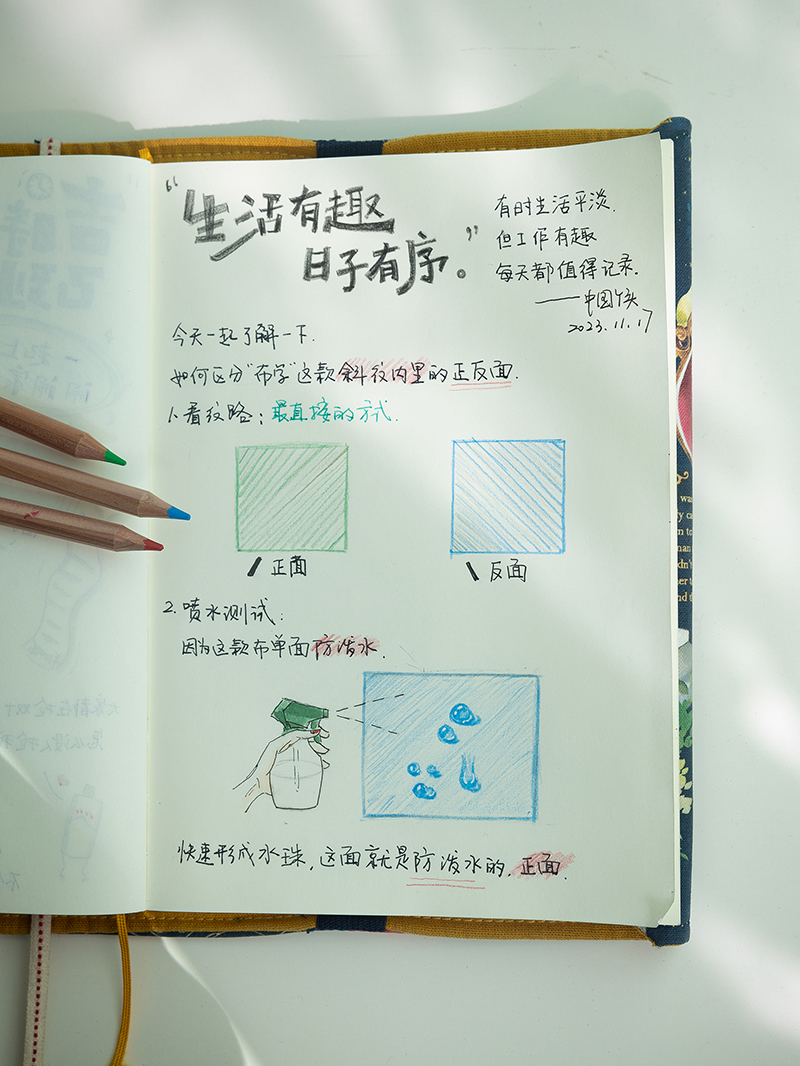 “生活有趣
日子有序。”
有时生活平淡.
但工作有趣
每天都值得记录.
——中国
2023.11.17
今天一起了解一下.
如何区分“布学”这款斜纹内里的正反面.
1.看纹路：最直接的方式.
正面
反面
2.喷水测试：
因为这款布单面防泼水.
快速形成水珠，这面就是防泼水的，正面.